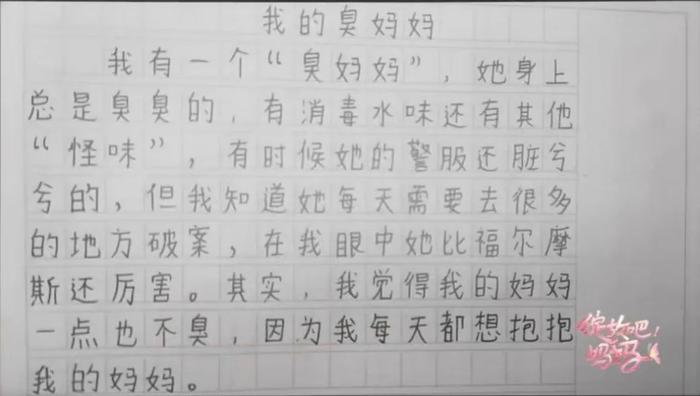 我的臭妈妈
我有一个“臭妈妈”，她身上
总是臭臭的，有消毒水味还有其他
“怪味”，有时候她的警服还脏兮
兮的，但我知道她每天需要去很多
的地方破案，在我眼中她比福尔摩
斯还厉害。其实，我觉得我的妈妈
一点也不臭，因为我每天都想抱抱
我的妈妈。
你好吧！
妈妈